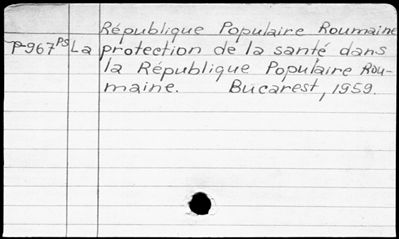 République Populaire Roumaine
P-967 PS La protection de la santé dans
la République Populaire Rou-
maine. Bucarest, 1959.